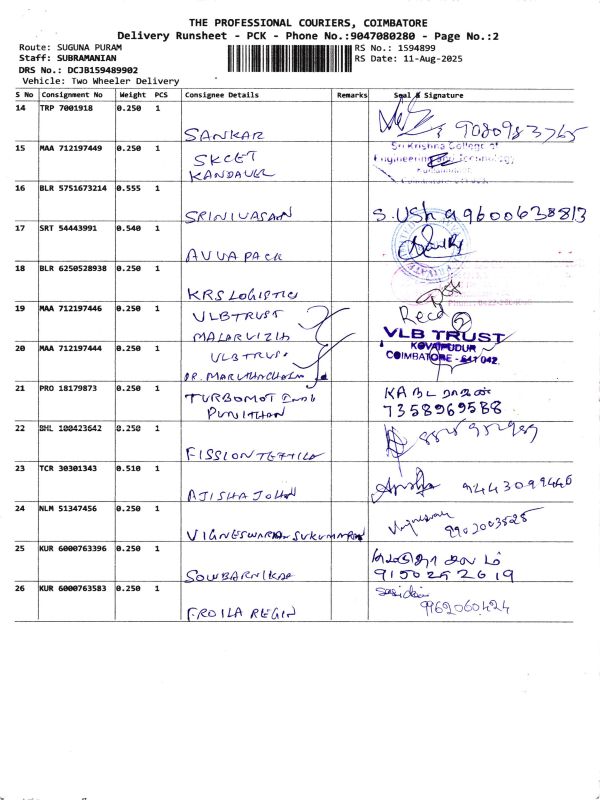 THE PROFESSIONAL COURIERS, COIMBATORE
Delivery Runsheet - PCK - Phone No.:9047080280 - Page No.:2
Route: SUGUNA PURAM
RS No.: 1594899
Staff: SUBRAMANIAN
RS Date: 11-Aug-2025
DRS No.: DCJB159489902
Vehicle: Two Wheeler Delivery
S No Consignment No Weight PCS Consignee Details Remarks Seal & Signature
14 TRP 7001918 0.250 1
SANKAR 9080983765
15 MAA 712197449 0.250 1
SKCET
KANDAVEL
Sri Krishna College of
Engineering and Technology
16 BLR 5751673214 0.555 1
SRINIVASAN S. USha 9600638813
17 SRT 54443991 0.540 1
AVVA PACK
18 BLR 6250528938 0.250 1
KRS LOGISTICS
19 MAA 712197446 0.250 1
VLB TRUST
MALARVIZIH
Recd 2
VLB TRUST
KOVAIPUDUR
COIMBATORE - 641 042.
20 MAA 712197444 0.250 1
VLB TRUST
DR. MARUTHACHALAM
21 PRO 18179873 0.250 1
TURBOMOT
PUNITHAN
7358969588
22 BHL 100423642 0.250 1
FISSION TEXTILE
23 TCR 30301343 0.510 1
AJISHA JOHN 9443099446
24 NLM 51347456 0.250 1
VIGNESWARAN SUKUMARAN
25 KUR 6000763396 0.250 1
SOWBARNIKAA
9150292619
26 KUR 6000763583 0.250 1
FROILA REGIN
9962060424